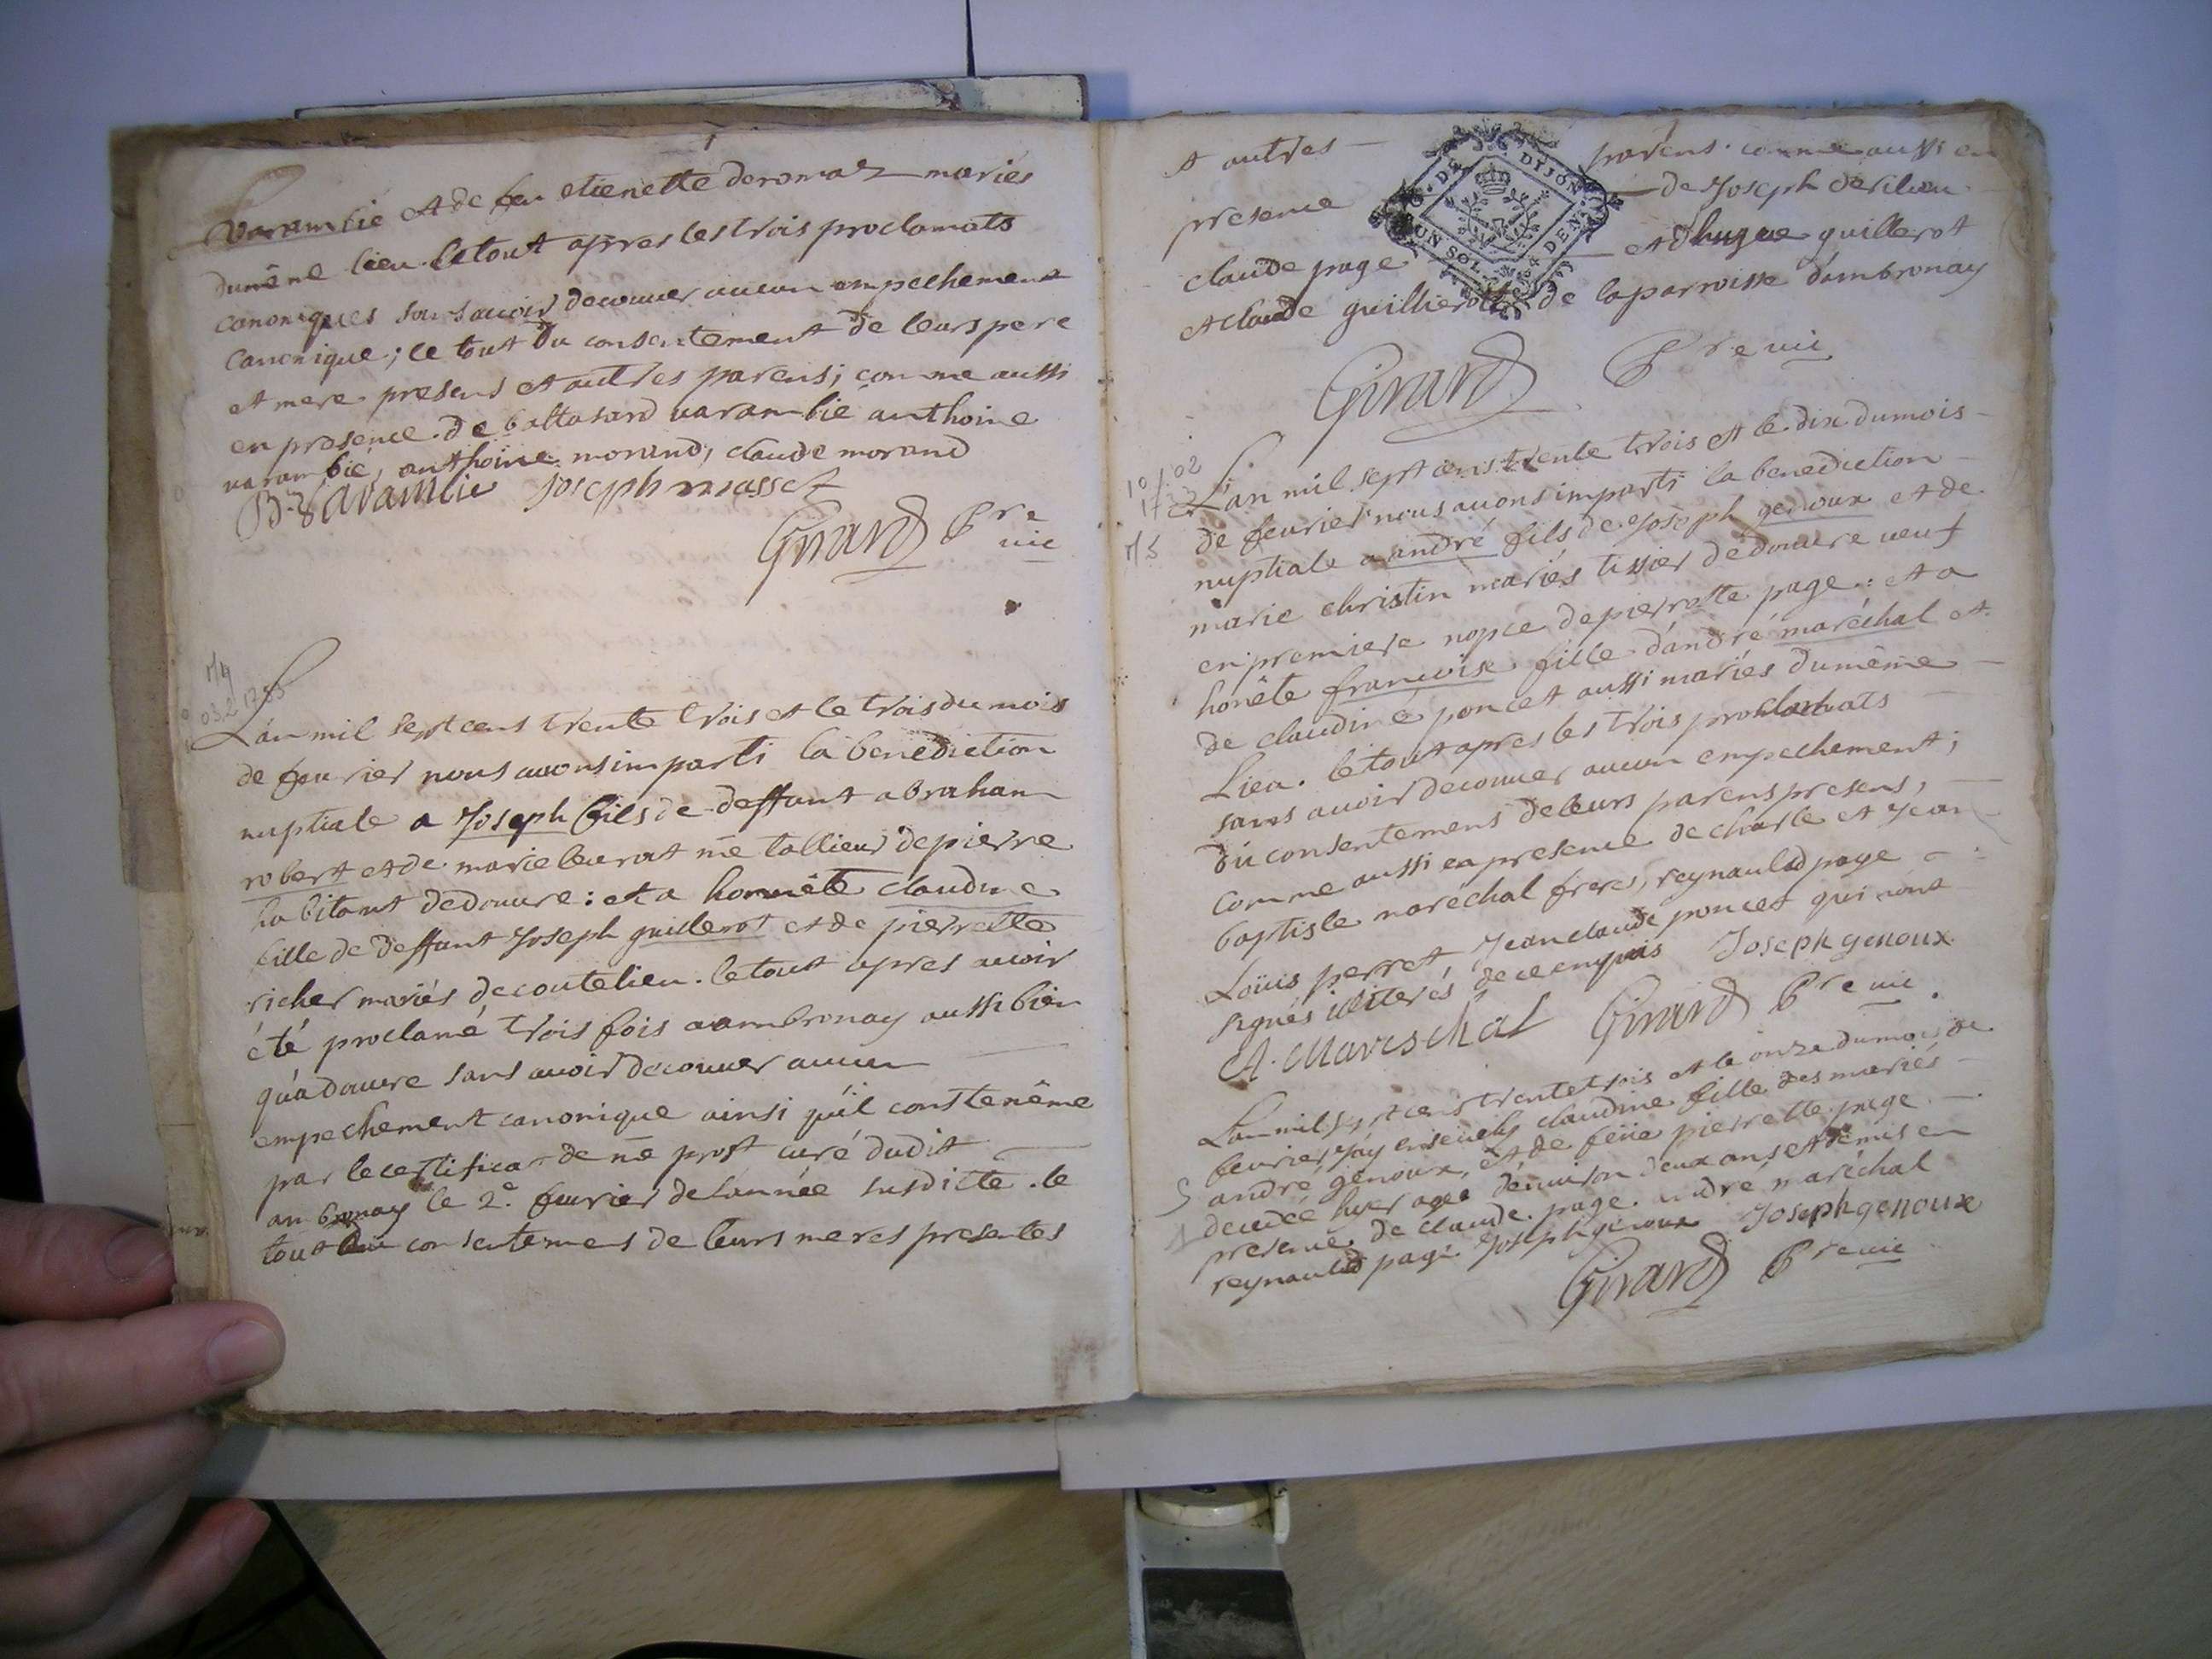 varambié et de feu etienette deromaz mariés
du même lieu. le tout apres les trois proclamats
canoniques sans avoir decouver aucun empechement
canonique; le tout du consentement de leurs pere
et mere presens et autres parens; comme aussi
en presence de baltasard varambié anthoine
varambié, anthoine morand, claude morand
B. Varambie Joseph masset
Girard Pre
vic
m4
03.2 1733
L'an mil sept cens trente trois et le trois du mois
de fevrier nous avons imparti la benediction
nuptiale a Joseph fils de deffunt abraham
robert et de marie levrat me tallieur de pierre
habitant dedouvre: et a honnête claudine
fille de deffunt Joseph guillerot et de pierrette
richer mariés decoutelieu. le tout apres avoir
été proclamé trois fois a ambronay aussi bien
qu'a douvre sans avoir decouver aucun
empechement canonique ainsi qu'il conste même
par le certificat de me prost curé dudit
ambronay le 2e fevrier de l'année susditte. le
tout du consentemens de leurs meres presentes
et autres parens. comme aussi en
presence de Joseph
claude page et d'hugue guillerot
et claude guillierot de la parroisse d'ambronay
G. DE DIJON
UN SOL 4 DEN.
Girard Pre vic
10/02
1733
m5
L'an mil sept cens trente trois et le dix du mois
de fevrier nous avons imparti la benediction
nuptiale a andré fils de Joseph genoux et de
marie christin mariés tissier dedouvre veuf
en premiere nopce de pierrette page: et a
honête francoise fille d'andré maréchal et
de claudine poncet aussi mariés du même
Lieu. le tout apres les trois proclamats
sans avoir decouver aucun empechement;
du consentemens de leurs parens presens,
comme aussi en presence de charle et Jean
baptiste maréchal freres, reynauld page
Loüis perret Jean claude poncet qui n'ont
signés illiterés de ce enquis Joseph genoux
A. Mareschal Girard Pre vic.
L'an mil sept cens trente trois et le onze du mois de
fevrier j'ay enseuely claudine fille des mariés
S
andré genoux, et de feüe pierrette page
decedée hyer agee d'environ deux ans et demis en
presence de claude page. andré maréchal
reynauld page Joseph genoux Joseph genoux
Girard Pre vic